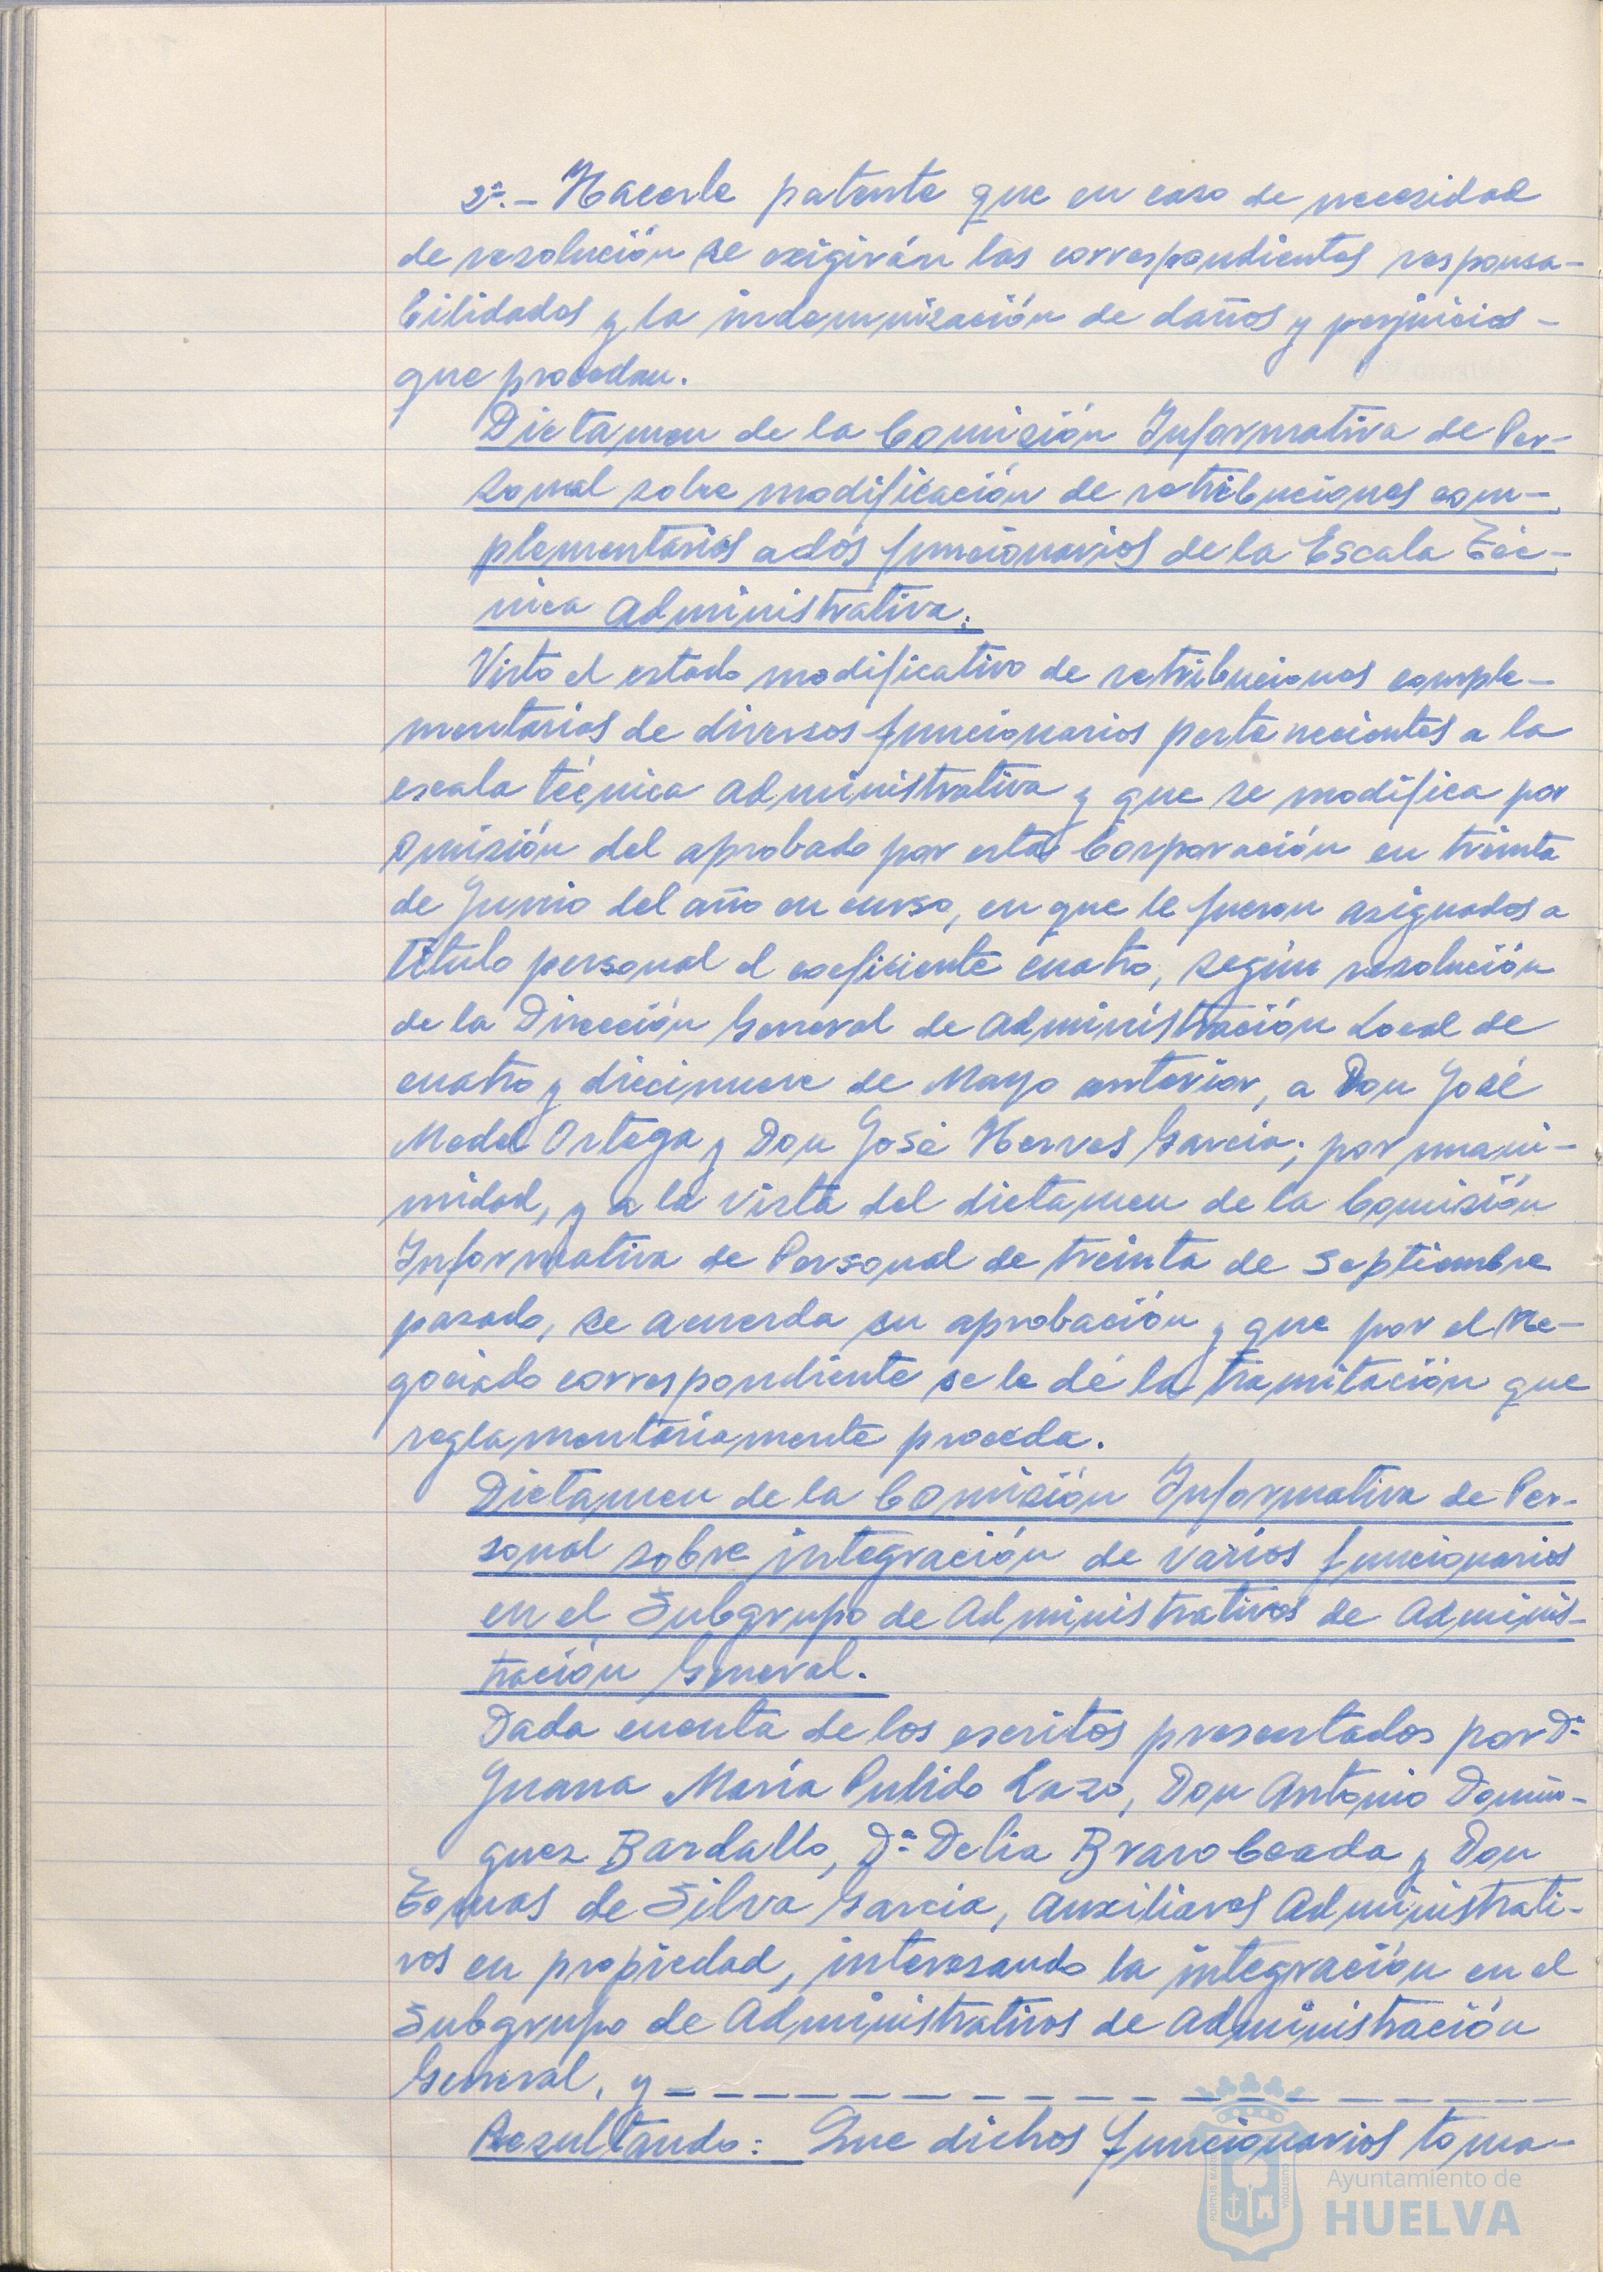 2º.- Hacerle patente que en caso de necesidad
de resolución se exigirán las correspondientes responsa-
bilidades y la indemnización de daños y perjuicios -
que procedan.
Dictamen de la Comisión Informativa de Per-
sonal sobre modificación de retribuciones com-
plementarias a dos funcionarios de la Escala Téc-
nica Administrativa.
Visto el estado modificativo de retribuciones comple-
mentarias de diversos funcionarios pertenecientes a la
escala técnica administrativa y que se modifica por
omisión del aprobado por esta Corporación en treinta
de Junio del año en curso, en que le fueron asignados a
título personal el coeficiente cuatro, según resolución
de la Dirección General de Administración Local de
cuatro y diecinueve de Mayo anterior, a Don José
Medel Ortega y Don José Herves García; por unani-
midad, y a la vista del dictamen de la Comisión
Informativa de Personal de treinta de Septiembre
pasado, se acuerda su aprobación y que por el Ne-
gociado correspondiente se le dé la tramitación que
reglamentariamente proceda.
Dictamen de la Comisión Informativa de Per-
sonal sobre integración de varios funcionarios
en el Subgrupo de Administrativos de Adminis-
tración General.
Dada cuenta de los escritos presentados por Dª
Juana María Pulido Lazo, Don Antonio Domín-
guez Bardallo, Dª Delia Bravo Ceada y Don
Tomas de Silva García, Auxiliares Administrati-
vos en propiedad, interesando la integración en el
Subgrupo de Administrativos de Administración
General, y - - - - - - - - - - - - -
Resultando: Que dichos funcionarios toma-
Ayuntamiento de
HUELVA